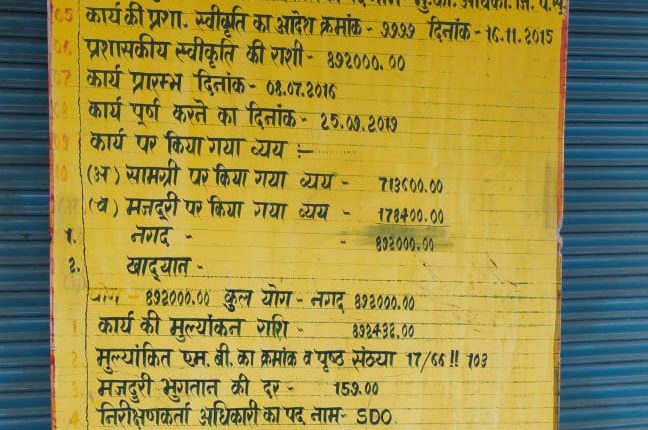 05 कार्य की प्रशा. स्वीकृति का आदेश क्रमांक - 9999 दिनांक - 16.11.2015
06 प्रशासकीय स्वीकृति की राशी - 892000.00
07 कार्य प्रारम्भ दिनांक - 08.07.2016
08 कार्य पूर्ण करने का दिनांक - 25.09.2019
09 कार्य पर किया गया व्यय :-
10 (अ) सामग्री पर किया गया व्यय - 713600.00
(ब) मजदूरी पर किया गया व्यय - 178400.00
1. नगद - - 892000.00
2. खाद्यान -
योग - 892000.00 कुल योग - नगद 892000.00
1 कार्य की मुल्यांकन राशि - 892432.00
2 मुल्यांकित एम. बी. का क्रमांक व पृष्ठ संख्या 17/66 !! 103
3 मजदुरी भुगतान की दर - 159.00
4 निरीक्षणकर्ता अधिकारी का पद नाम - SDO